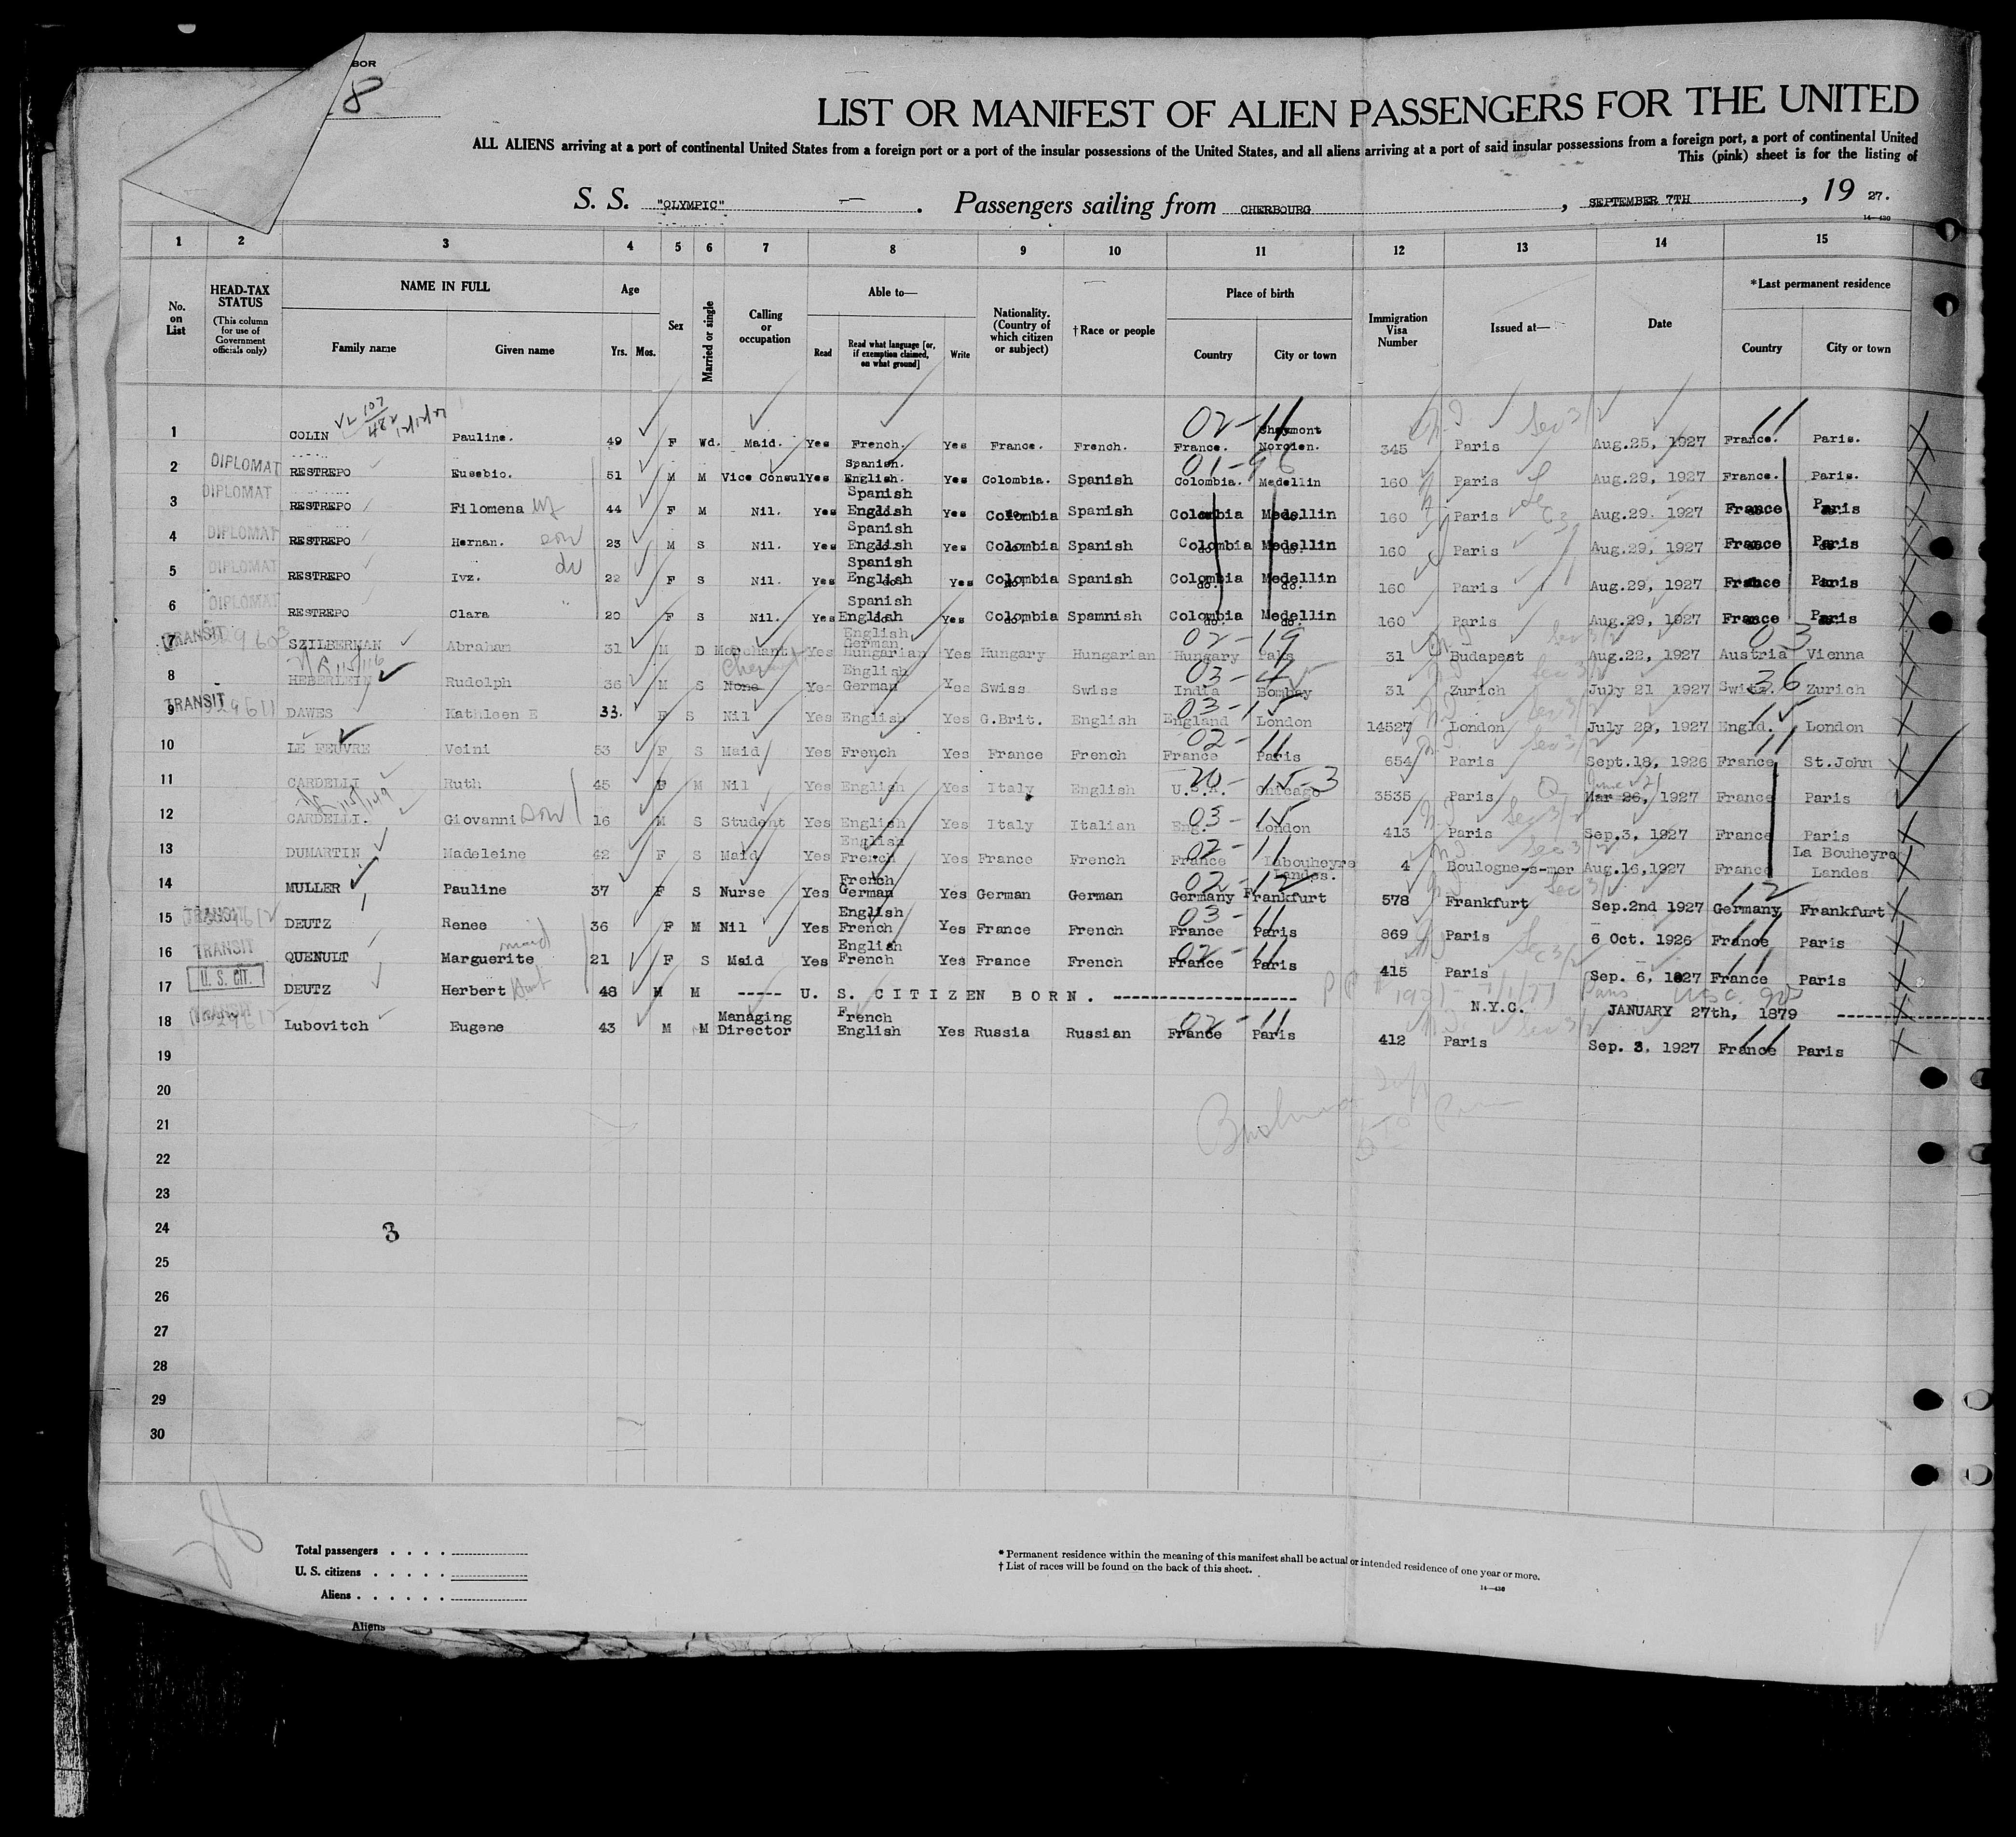 BOR
8
LIST OR MANIFEST OF ALIEN PASSENGERS FOR THE UNITED
ALL ALIENS arriving at a port of continental United States from a foreign port or a port of the insular possessions of the United States, and all aliens arriving at a port of said insular possessions from a foreign port, a port of continental United
This (pink) sheet is for the listing of
S. S. "OLYMPIC" Passengers sailing from CHERBOURG, SEPTEMBER 7TH, 19 27.
14—430
1 2 3 4 5 6 7 8 9 10 11 12 13 14 15
No. on List HEAD-TAX STATUS (This column for use of Government officials only) NAME IN FULL Family name Given name Age Yrs. Mos. Sex Married or single Calling or occupation Able to— Read Read what language [or, if exemption claimed, on what ground] Write Nationality. (Country of which citizen or subject) †Race or people Place of birth Country City or town Immigration Visa Number Issued at— Date *Last permanent residence Country City or town
1 COLIN Pauline. 49 F Wd. Maid. Yes French. Yes France. French. France. 02-11 Norcien. 345 Paris Aug.25, 1927 France. 11 Paris.
2 DIPLOMAT RESTREPO Eusebio. 51 M M Vice Consul Yes Spanish. English. Yes Colombia. Spanish Colombia. Medellin 160 Paris Aug.29, 1927 France. Paris.
3 DIPLOMAT RESTREPO Filomena wf 44 F M Nil. Yes Spanish English Yes Colombia Spanish Colombia Medellin 160 Paris Aug.29. 1927 France Paris
4 DIPLOMAT RESTREPO Hernan. son 23 M S Nil. Yes Spanish English Yes Colombia Spanish Colombia Medellin 160 Paris Aug.29, 1927 France Paris
5 DIPLOMAT RESTREPO Ivz. 22 F S Nil. Yes Spanish English Yes Colombia Spanish Colombia Medellin 160 Paris Aug.29, 1927 France Paris
6 DIPLOMAT RESTREPO Clara 20 F S Nil. Yes Spanish English Yes Colombia Spamnish Colombia Medellin 160 Paris Aug.29, 1927 France Paris
7 TRANSIT SZILBERMAN Abraham 31 M D Merchant Yes English German Hungarian Yes Hungary Hungarian Hungary 02-19 31 Budapest Aug.22, 1927 Austria 03 Vienna
8 HEBERLEIN Rudolph 36 M S None Yes English German Yes Swiss Swiss India 03-4 Bombay 31 Zurich July 21 1927 Switz. 36 Zurich
9 TRANSIT 29611 DAWES Kathleen E 33. F S Nil Yes English Yes G.Brit. English England 03-15 London 14527 London July 28, 1927 Engld. 15 London
10 LE FEUVRE Veini 53 F S Maid Yes French Yes France French France 02-11 Paris 654 Paris Sept.18, 1926 France 11 St.John
11 CARDELLI Ruth 45 F M Nil Yes English Yes Italy English U.S.A. 20-15-3 Chicago 3535 Paris Mar 26, 1927 France Paris
12 CARDELLI. Giovanni son 16 M S Student Yes English Yes Italy Italian Eng. 03-15 London 413 Paris Sep.3, 1927 France Paris
13 DUMARTIN Madeleine 42 F S Maid Yes English French Yes France French France 02-11 Labouheyre Landes. 4 Boulogne-s-mer Aug.16,1927 France La Bouheyre Landes
14 MULLER Pauline 37 F S Nurse Yes French German Yes German German Germany 02-12 Frankfurt 578 Frankfurt Sep.2nd 1927 Germany 12 Frankfurt
15 TRANSIT DEUTZ Renee 36 F M Nil Yes English French Yes France French France 03-11 Paris 869 Paris 6 Oct. 1926 France 11 Paris
16 TRANSIT QUENULT Marguerite maid 21 F S Maid Yes English French Yes France French France 02-11 Paris 415 Paris Sep. 6, 1927 France 11 Paris
17 U. S. CIT. DEUTZ Herbert 48 M M ----- U. S. CITIZEN BORN. N.Y.C. JANUARY 27th, 1879
18 TRANSIT Lubovitch Eugene 43 M M Managing Director French English Yes Russia Russian France 02-11 Paris 412 Paris Sep. 3. 1927 France 11 Paris
19
20
21
22
23
24 3
25
26
27
28
29
30
28
Total passengers . . . .
U. S. citizens . . . . .
Aliens . . . . . .
Aliens
*Permanent residence within the meaning of this manifest shall be actual or intended residence of one year or more.
†List of races will be found on the back of this sheet.
14—430